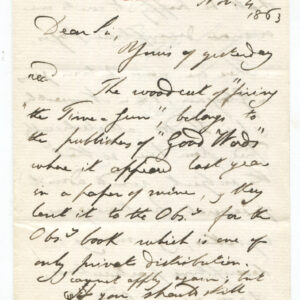 Nov. 4
1863
Dear Sir,
Yours of yesterday
recd
The woodcut of "firing
the Time-Gun", belongs to
the publishers of "Good Words"
where it appeared last year
in a paper of mine, & they
lent it to the Obsy for the
Obsy book which is one of
only private distribution.
I cannot apply again; but
if you should still